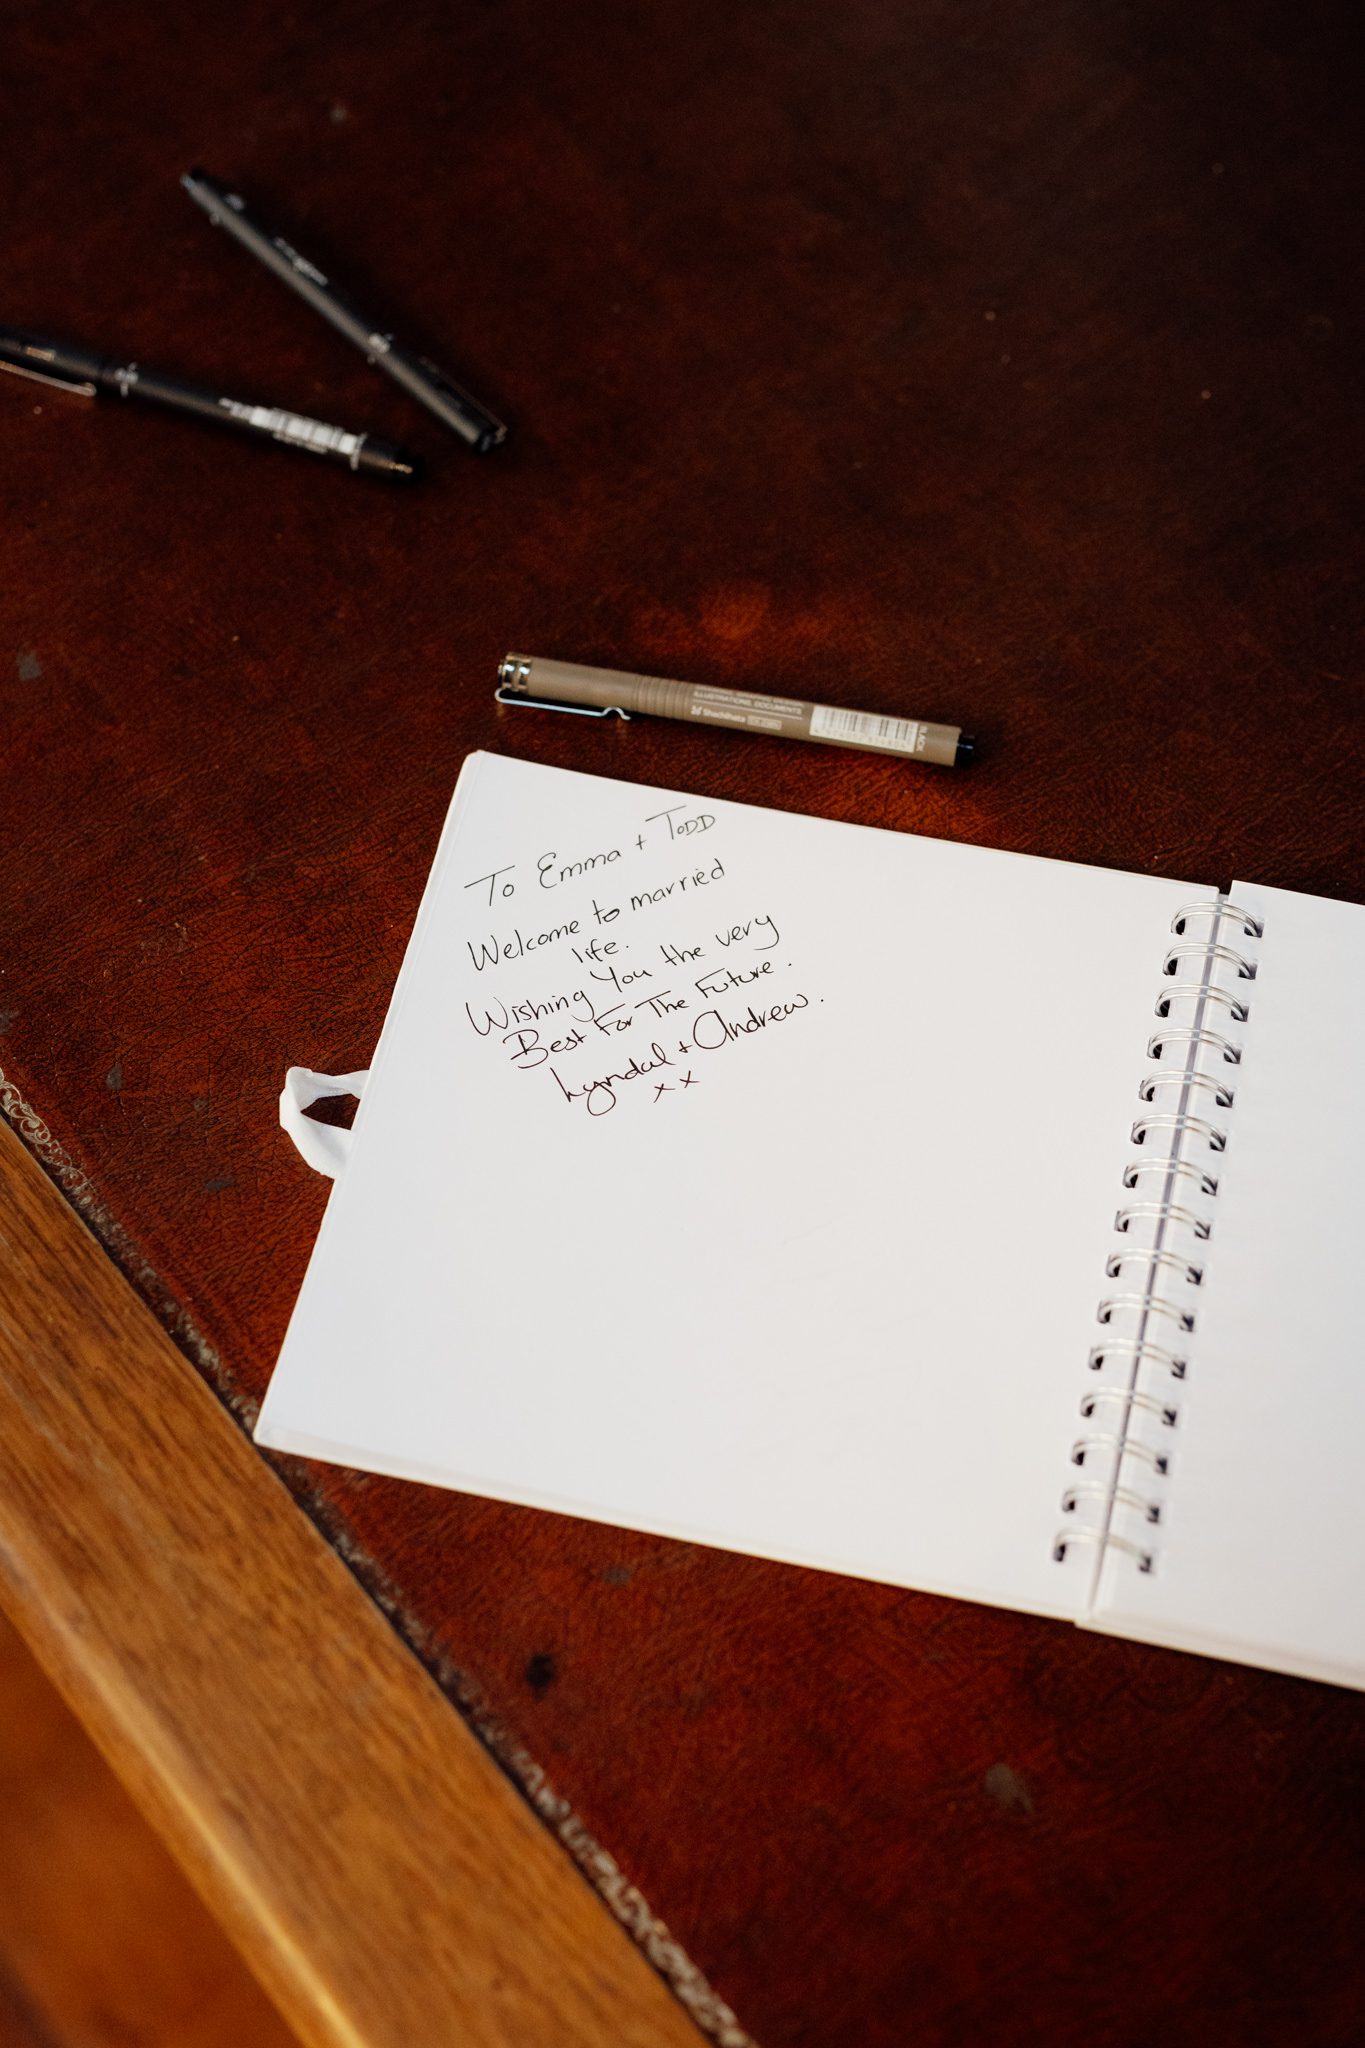 ILLUSTRATIONS, DOCUMENTS
Shachihata
BLACK
To Emma + TODD
Welcome to married
life.
Wishing You the very
Best For The Future.
Lyndal + Andrew.
xx